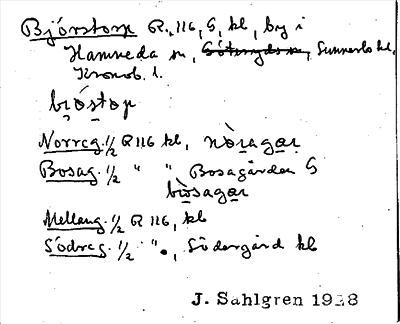 Björstorp R. 116, G, kl, by i
Hamneda sn, Sunnerbo hd,
Kronob. l.
bjòstop
Norreg. 1/2 R 116 kl, nòragaꞃ
Bosag. 1/2 " " Bosagården G
bòsagaꞃ
Mellang. 1/2 R 116, kl
Södreg. 1/2 " , Södergård kl
J. Sahlgren 1928